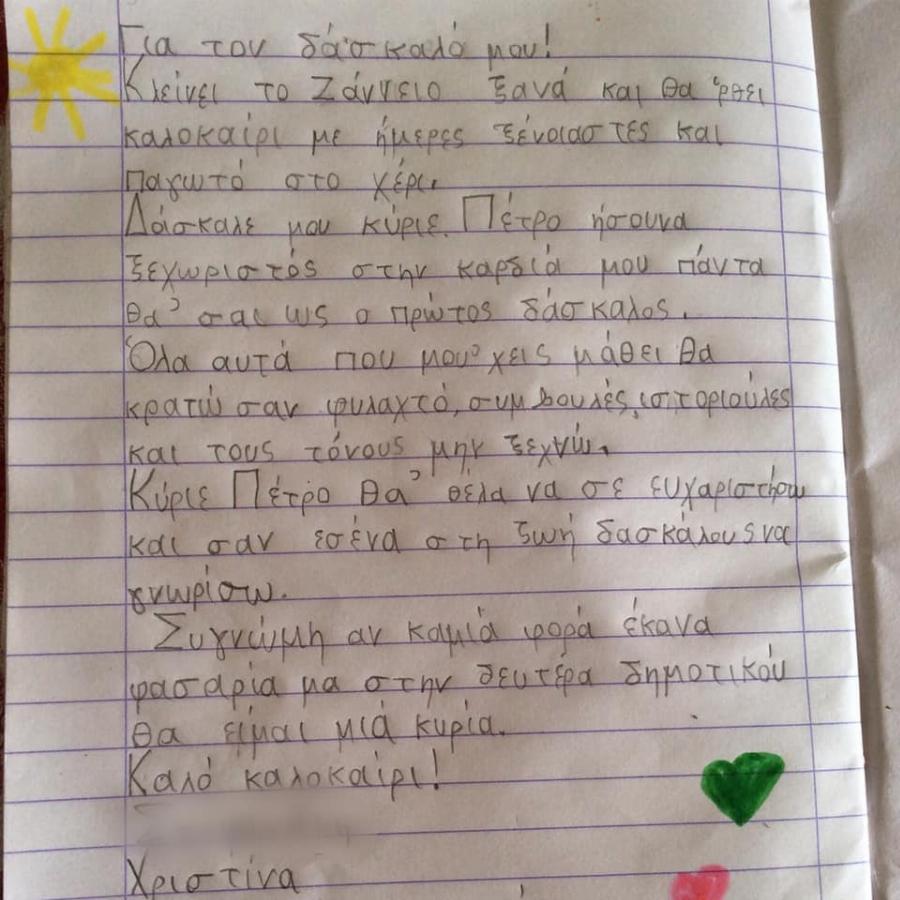 Για τον δάσκαλό μου!
Κλείνει το Ζάννειο ξανά και θα 'ρθει
καλοκαίρι με ήμερες ξένοιαστές και
παγωτό στο χέρι.
Δάσκαλε μου κύριε Πέτρο ήσουνα
ξεχωριστός στην καρδιά μου πάντα
θα' σαι ως ο πρώτος δάσκαλος.
Όλα αυτά που μου' χεις μάθει θα
κρατώ σαν φυλαχτό, συμβουλές, ιστοριούλες
και τους τόνους μην ξεχνώ.
Κύριε Πέτρο θα' θέλα να σε ευχαριστήσω
και σαν εσένα στη ζωή δασκάλους να
γνωρίσω.
Συγνώμη αν καμιά φορά έκανα
φασαρία μα στην δευτέρα δημοτικού
θα είμαι μιά κυρία.
Καλό καλοκαίρι!
Χριστίνα